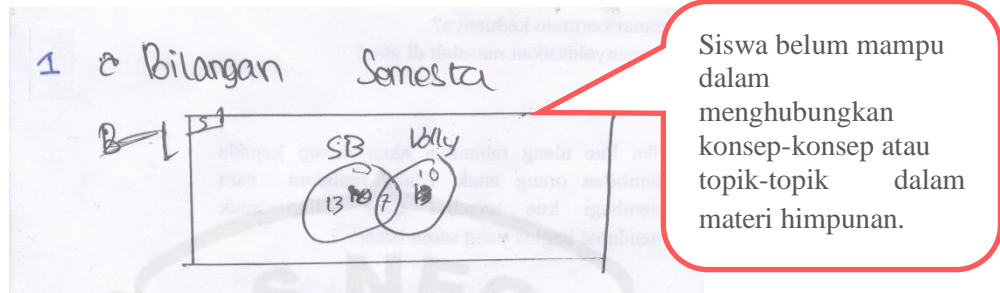 1 Bilangan Semesta
S
SB Volly
13 7 10
Siswa belum mampu
dalam
menghubungkan
konsep-konsep atau
topik-topik dalam
materi himpunan.